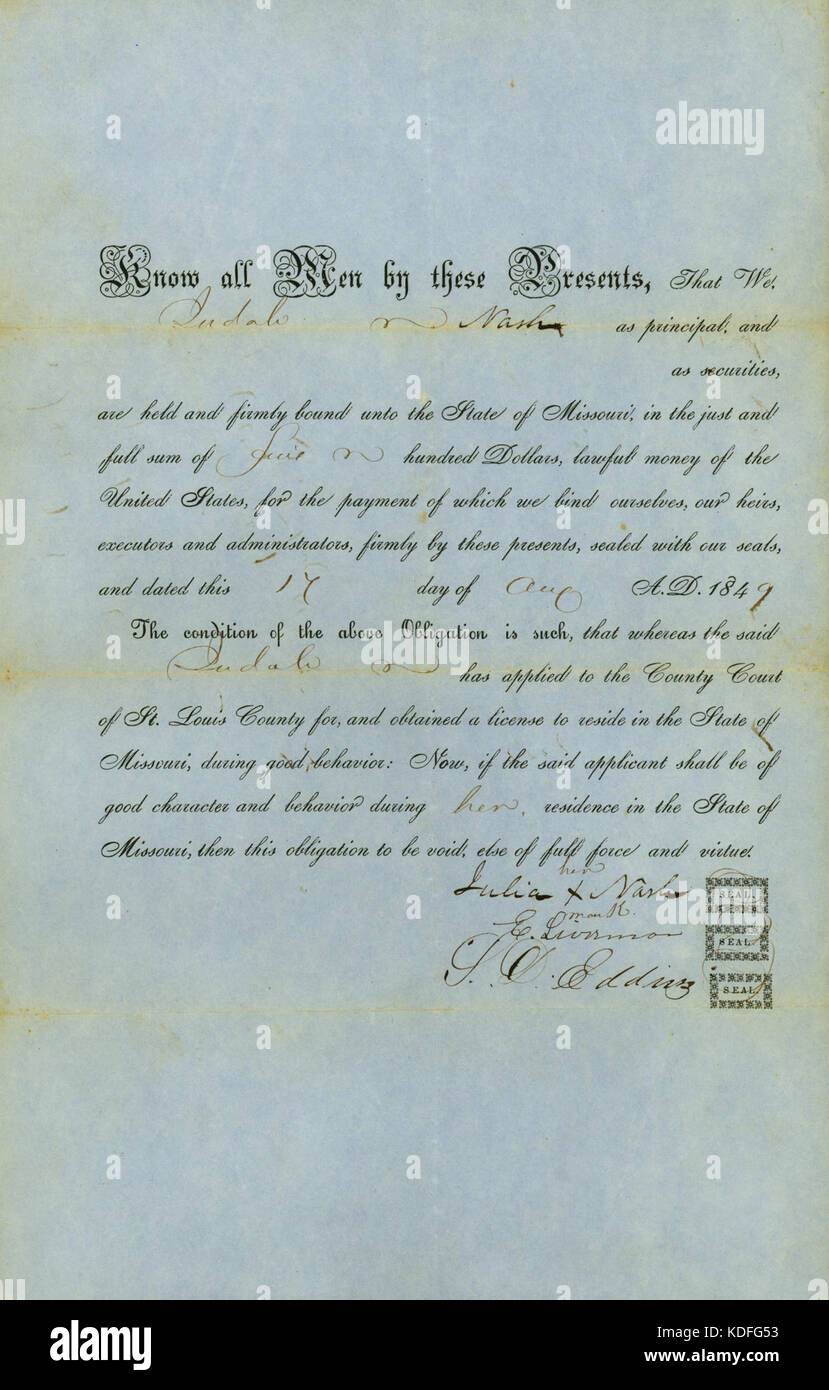 alamy
Know all Men by these Presents, That We,
Nash as principal, and
as securities,
are held and firmly bound unto the State of Missouri, in the just and
full sum of hundred Dollars, lawful money of the
United States, for the payment of which we bind ourselves, our heirs,
executors and administrators, firmly by these presents, sealed with our seals,
and dated this 17 day of Aug A.D. 1849
The condition of the above Obligation is such, that whereas the said
has applied to the County Court
of St. Louis County for, and obtained a license to reside in the State of
Missouri, during good behavior: Now, if the said applicant shall be of
good character and behavior during her residence in the State of
Missouri, then this obligation to be void, else of full force and virtue.
her
Julia X Nash SEAL.
mark.
E. SEAL.
S. D. SEAL.
alamy
Image ID: KDFG53
www.alamy.com